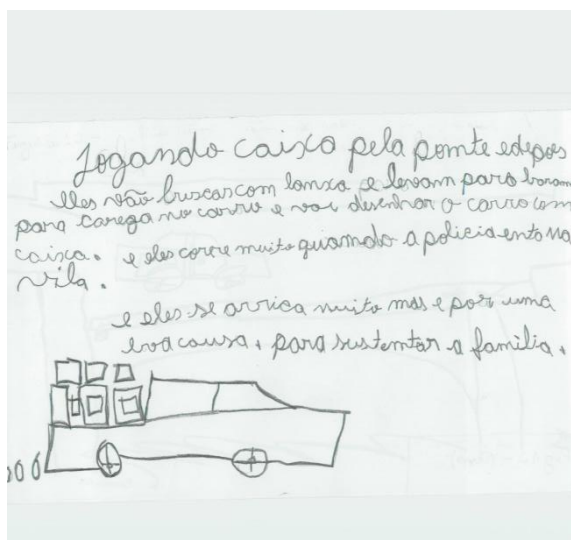 Jogando caixa pela pomte edepos
elles vão buscascom lomxa e levam para baram
para caregano carro e vai desenhar o carro com
caixa. e eles corre muito quamdo a policia ento na
vila.
e eles se arrica muito mas e por uma
boa causa, para sustemtar a familia.